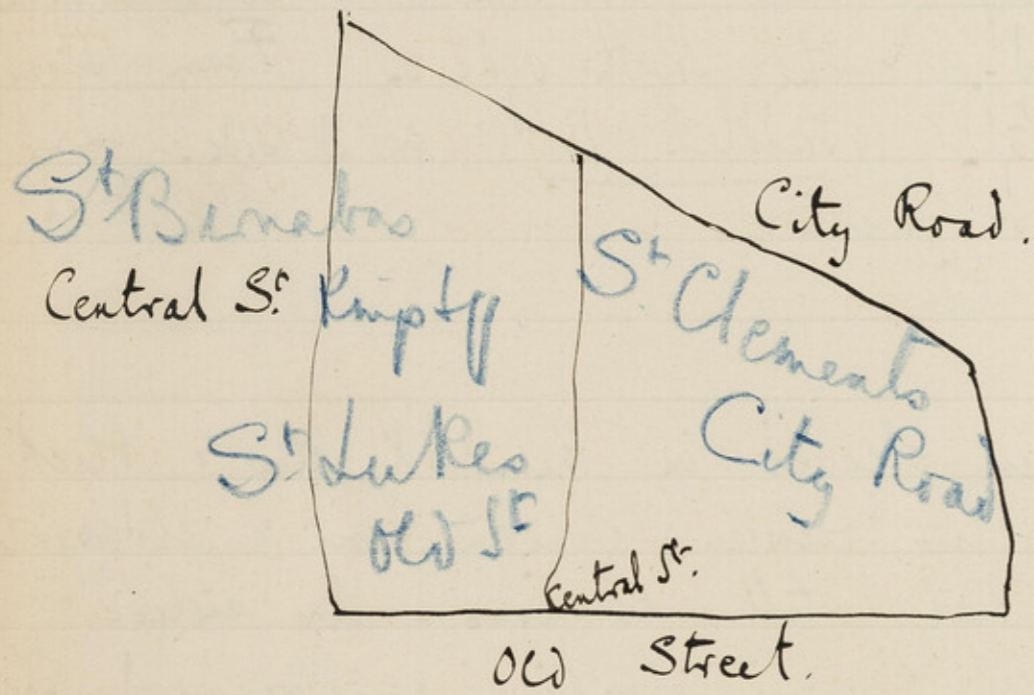 St Barnabas
City Road.
Central St.
St Clements
City Road
St Lukes
Old St
Central St.
Old Street.